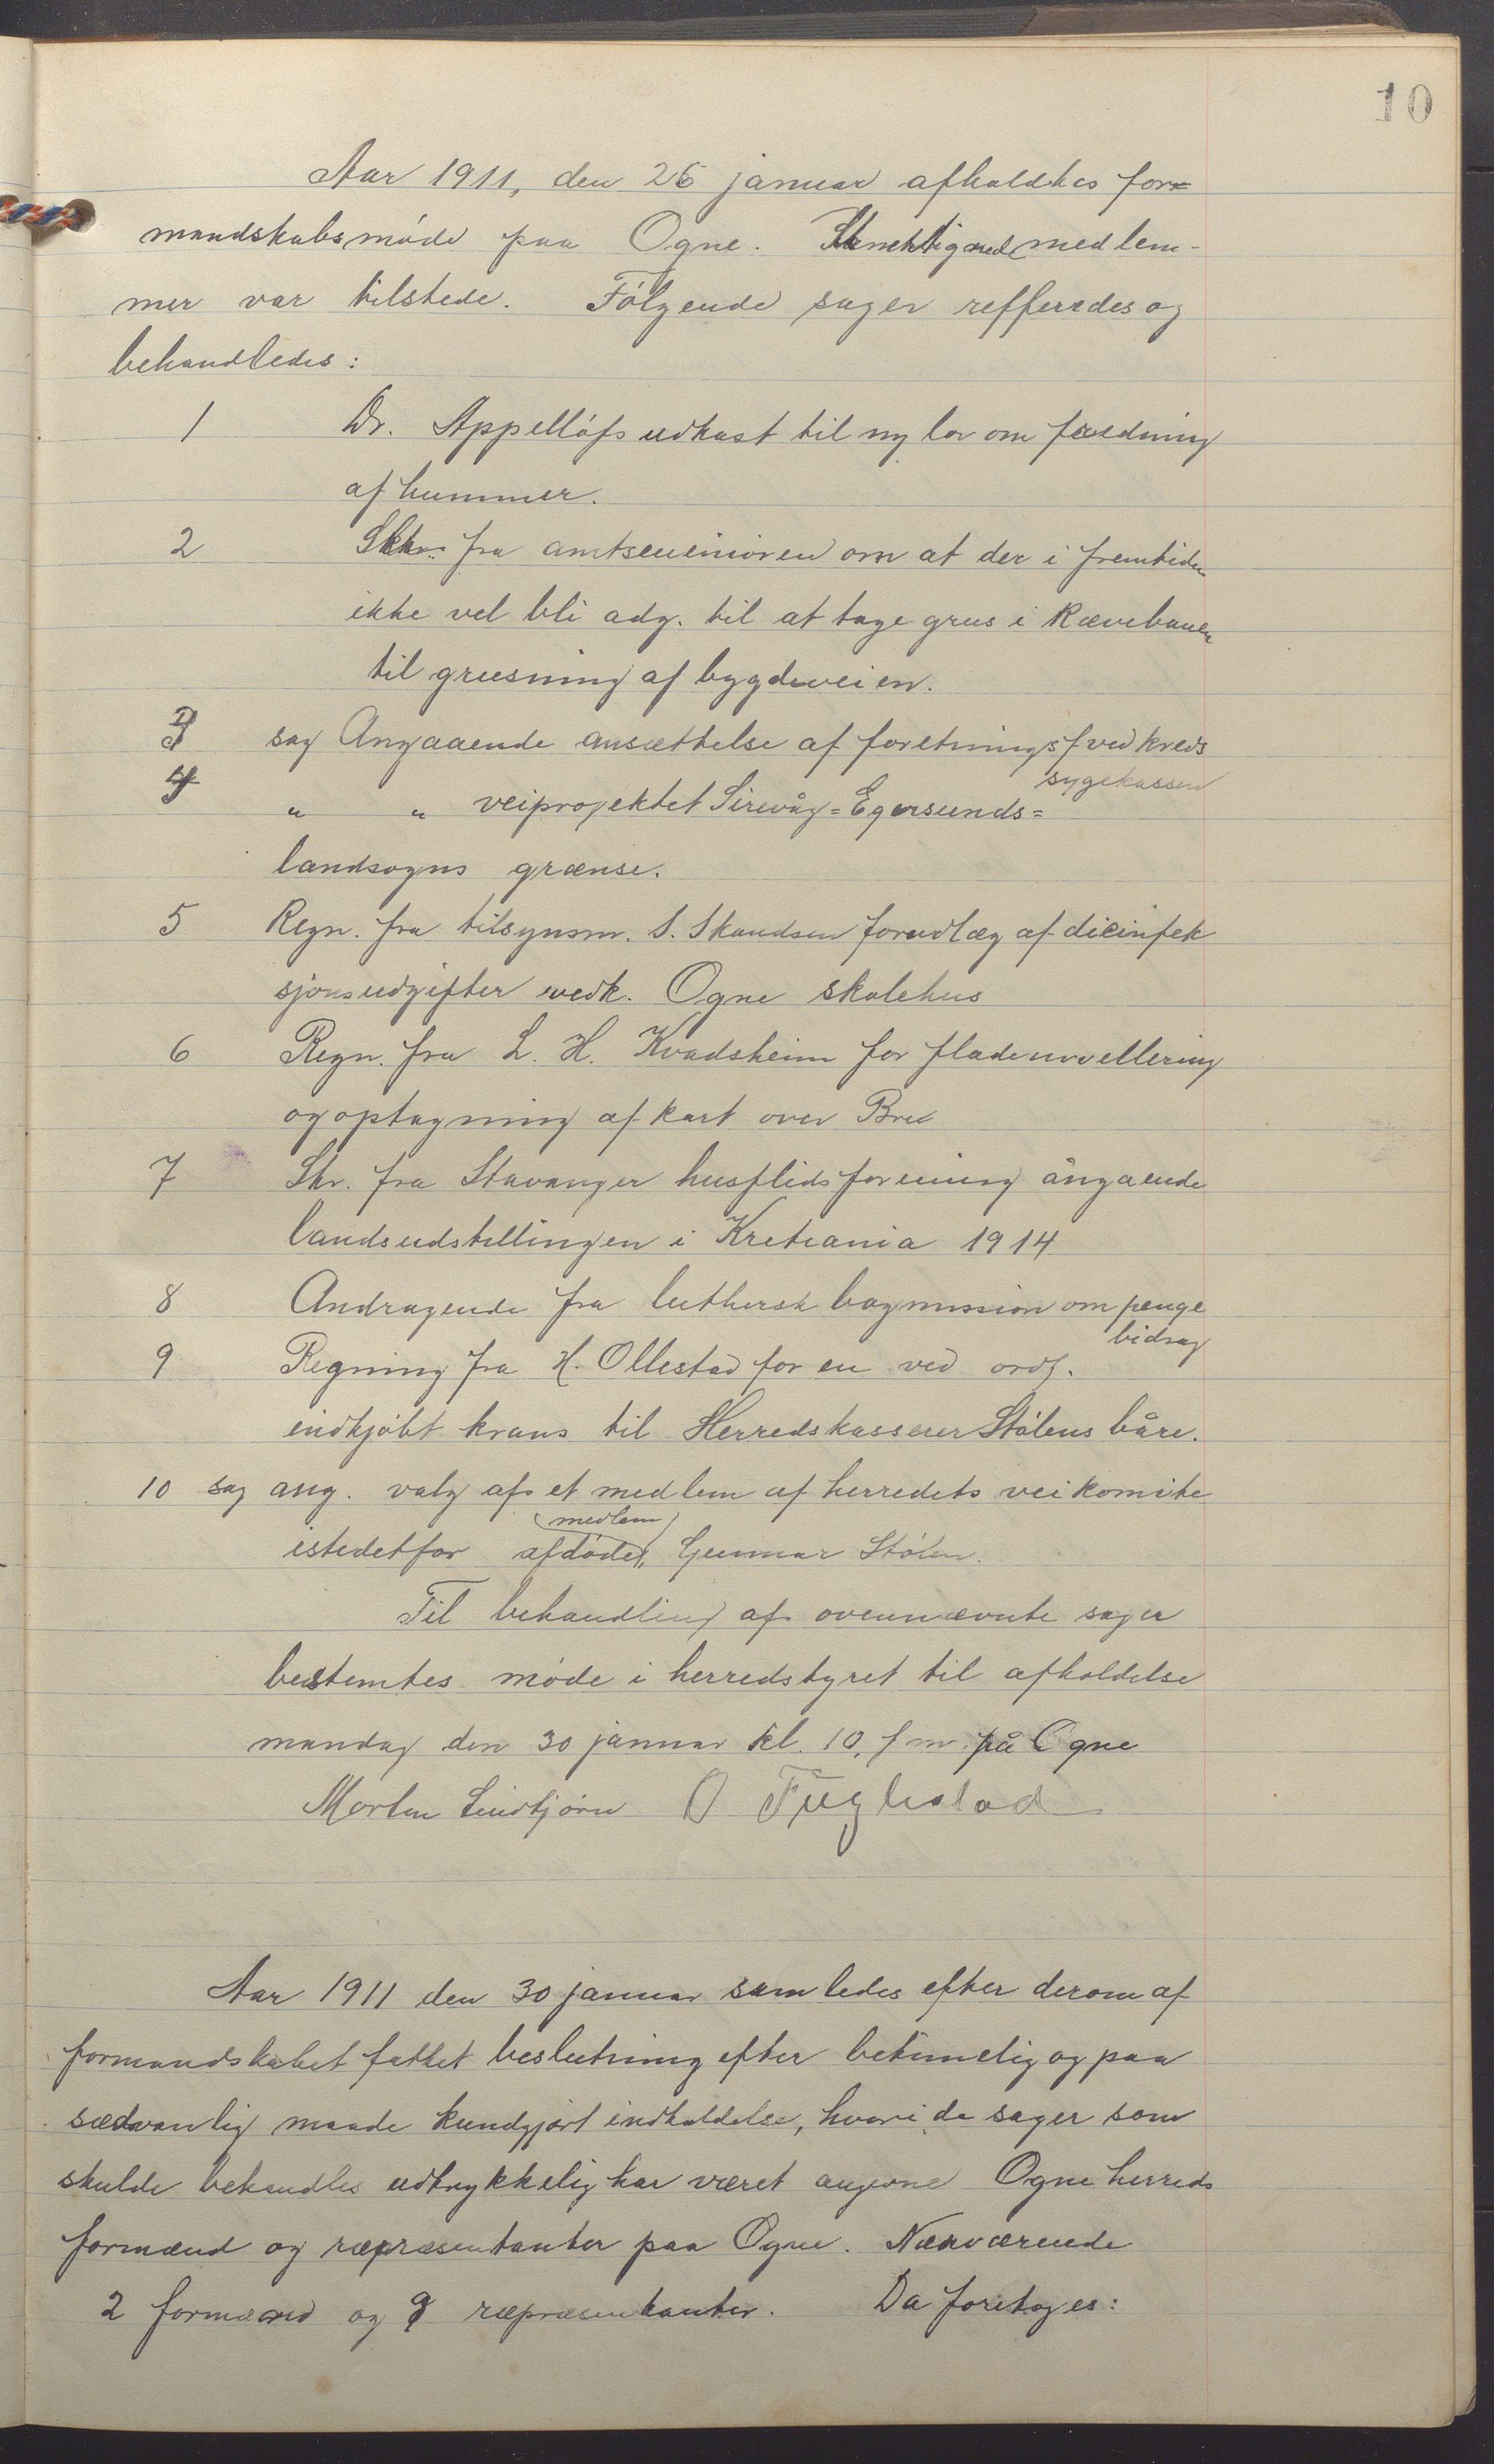 10
Aar 1911, den 26 januar afholdtes for=
mandskabsmöde paa Ogne. Samtlige medlem-
mer var tilstede. Fölgende sager refferedes og
behandledes:
1 Dr. Appellöfs udkast til ny lov om fredning
af hummer.
2 Skr. fra amtseninören om at der i fremtiden
ikke vel bli adg. til at tage grus i Rævebauen
til grusning af bygdeveien.
3 sag Angaaende ansættelse af foretningsf ved kreds
sygekassen
4 " " veiprojektet Sirevåg=Egersunds=
landsogns grænse.
5 Regn. fra tilsynsm. S. Skaudsen for udlæg af dicinfek
sjonsudgifter vedk. Ogne skolehus
6 Regn. fra L. H. Kvadsheim for fladenivellering
og optagning af kart over Bru
7 Skr. fra Stavanger husflidsforening ångaende
landsudstillingen i Kretiania 1914
8 Andragende fra luthersk bogmission om penge
bidrag
9 Regning fra H. Ollestad for en ved ordf.
indkjöbt krans til Herredskasserer Stölens båre.
10 sag ang. valg af et medlem af herredets veikomite
istedetfor afdöde medlem Gunnar Stölen.
Til behandling af ovennævnte sager
bestemtes möde i herredstyret til afholdelse
mandag den 30 januar kl. 10, f m på Ogne
Morten Lindtjörn O Fuglestad
Aar 1911 den 30 januar samledes efter derom af
formandskabet fattet beslutning efter betimelig og paa
sædvanlig maade kundgjört indkaldelse, hvori de sager som
skulde behandles udtrykkelig har været angivne Ogne herreds
formænd og repræsentanter paa Ogne. Nærværende
2 formænd og 9 repræsentanter. Da foretoges: